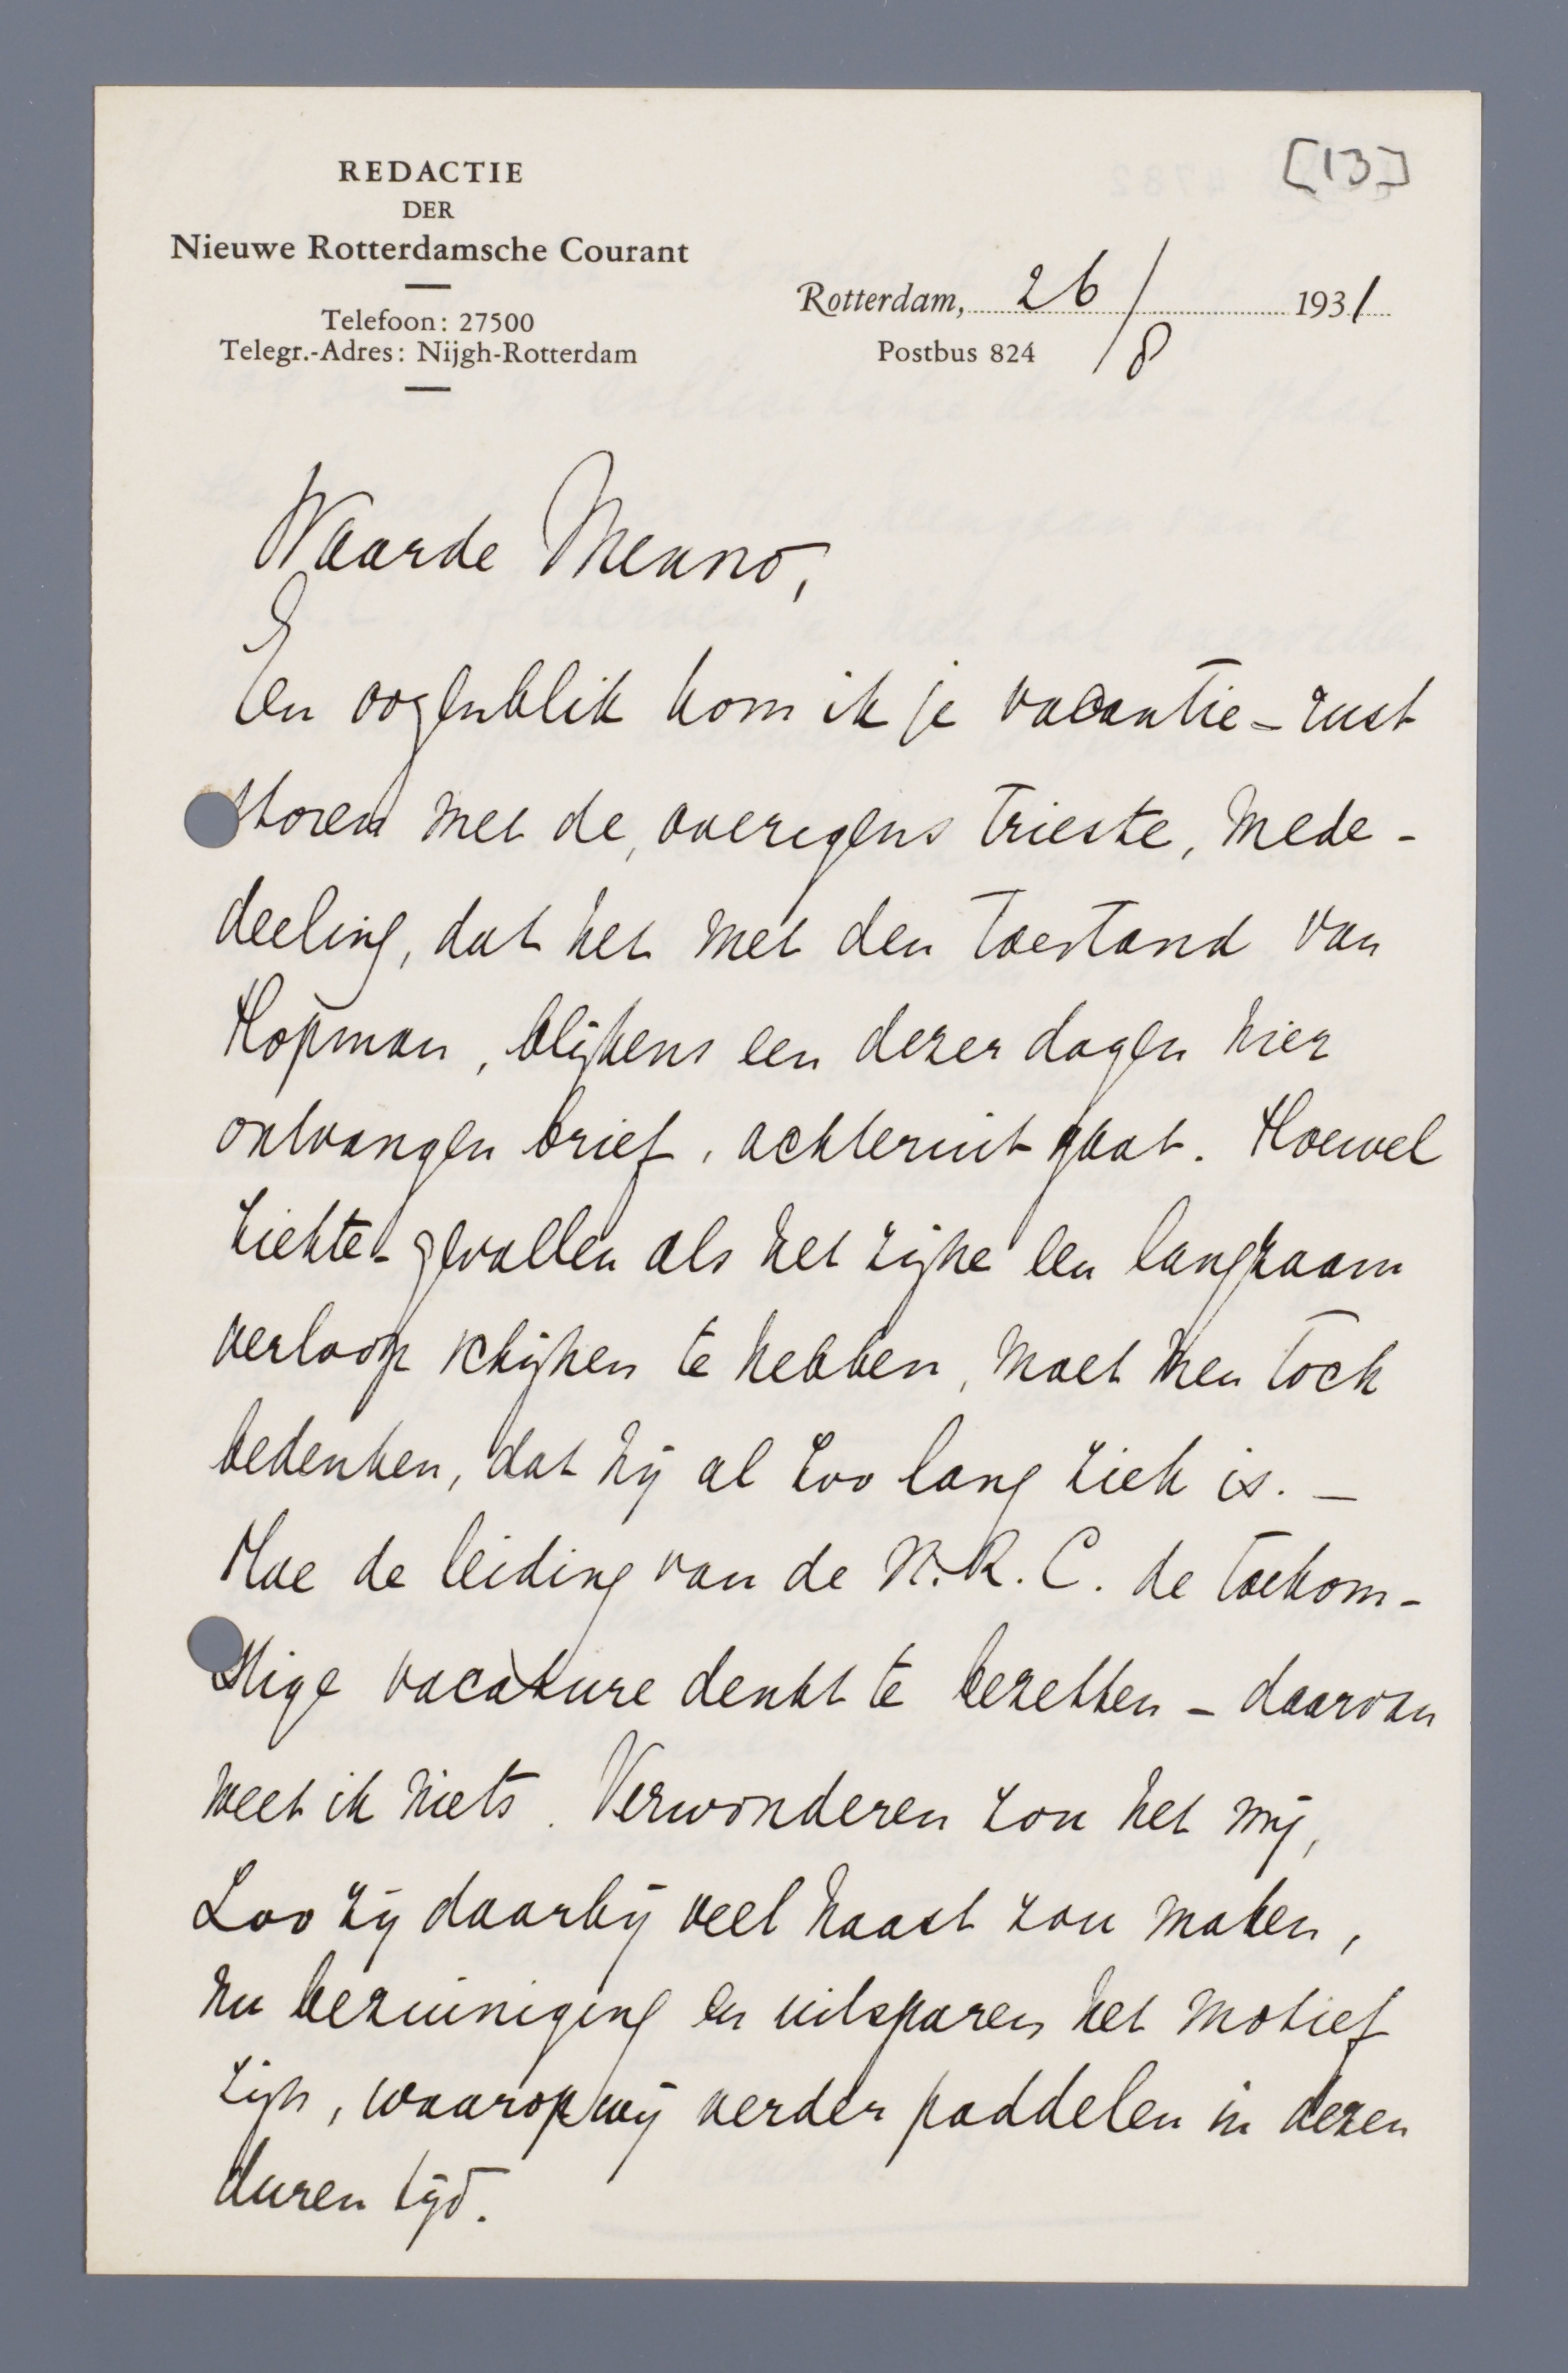 [13]
REDACTIE
DER
Nieuwe Rotterdamsche Courant
Telefoon: 27500
Telegr.-Adres: Nijgh-Rotterdam
Rotterdam, 26/8 1931
Postbus 824
Waarde Menno,
Een oogenblik kom ik je vacantie-rust
storen met de, overigens trieste, mede-
deeling, dat het met den toestand van
Kopman, blijkens een dezer dagen hier
ontvangen brief, achteruit gaat. Hoewel
ziekte-gevallen als het zijne een langzaam
verloop schijnen te hebben, moet men toch
bedenken, dat hij al zoo lang ziek is. —
Hoe de leiding van de N.R.C. de toekom-
stige vacature denkt te bezetten – daarvan
weet ik niets. Verwonderen zou het mij,
zoo zij daarbij veel haast zou maken,
nu bezuiniging en uitsparen het motief
zijn, waarop wij verder paddelen in dezen
duren tijd.